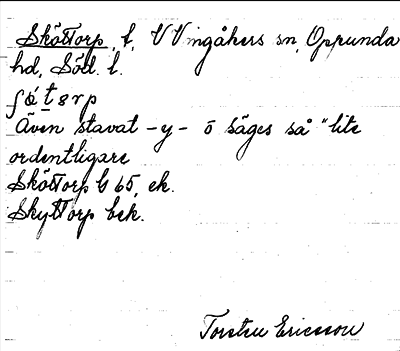 Sköttorp, t, V Vingåkers sn, Oppunda
hd, Söd. l.
Även stavat -y- o säges så "lite
ordentligare
Sköttorp G 65, ek.
Skyttorp bek.
Torsten Ericsson